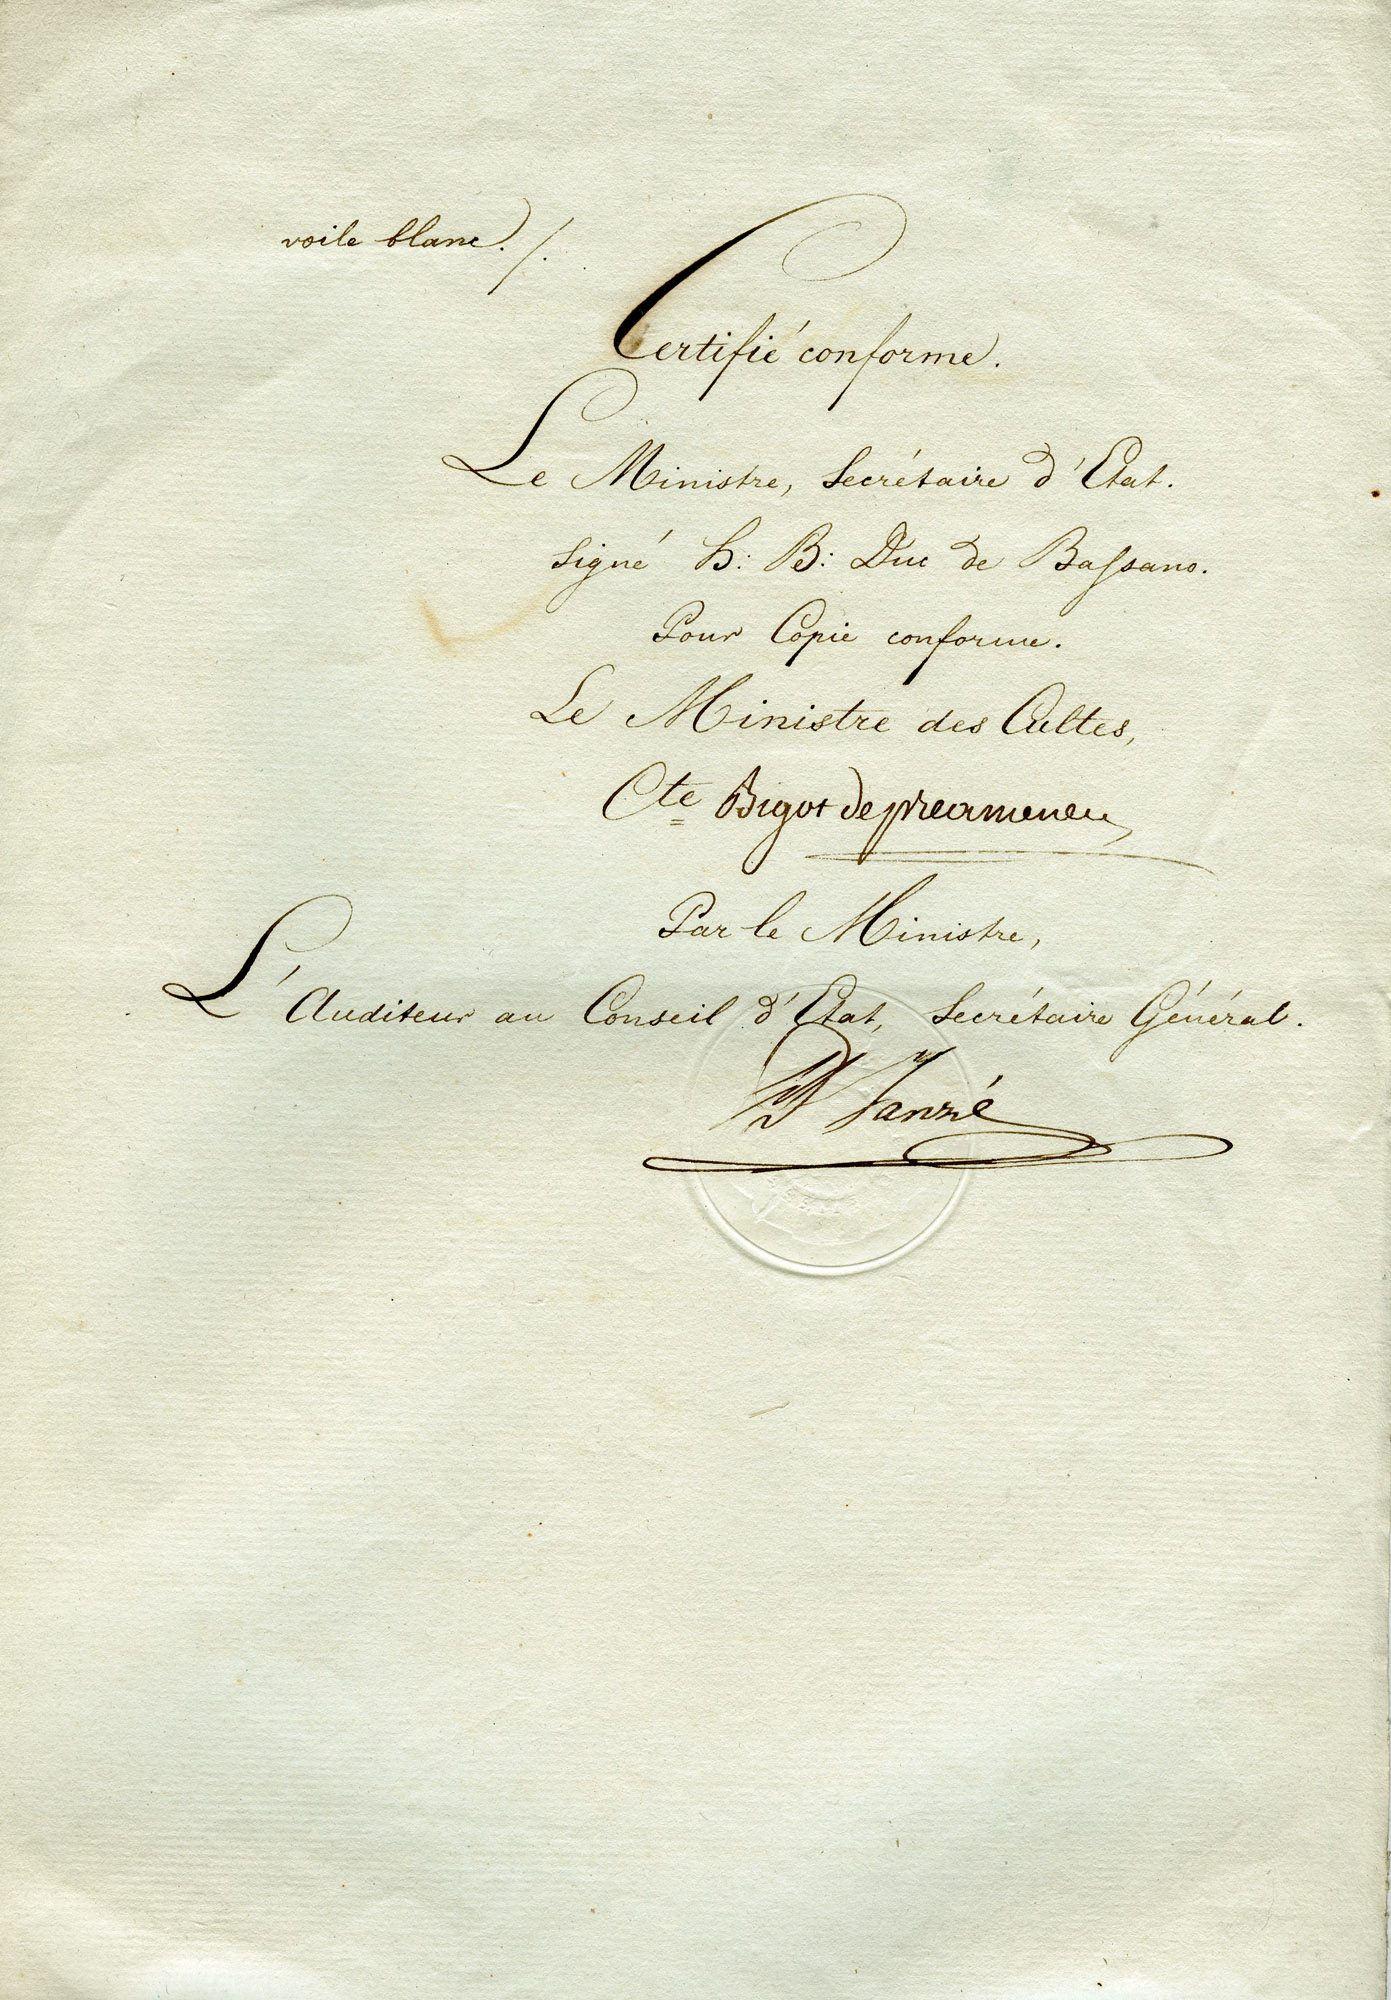 voile blanc ./.
Certifié conforme.
Le Ministre, Secrétaire d'Etat.
signé h: B: Duc de Bassano.
Pour Copie conforme.
Le Ministre des Cultes,
Cte Bigot de préameneu
Par le Ministre,
L'Auditeur au Conseil d'Etat, Secrétaire Général.
Janzé